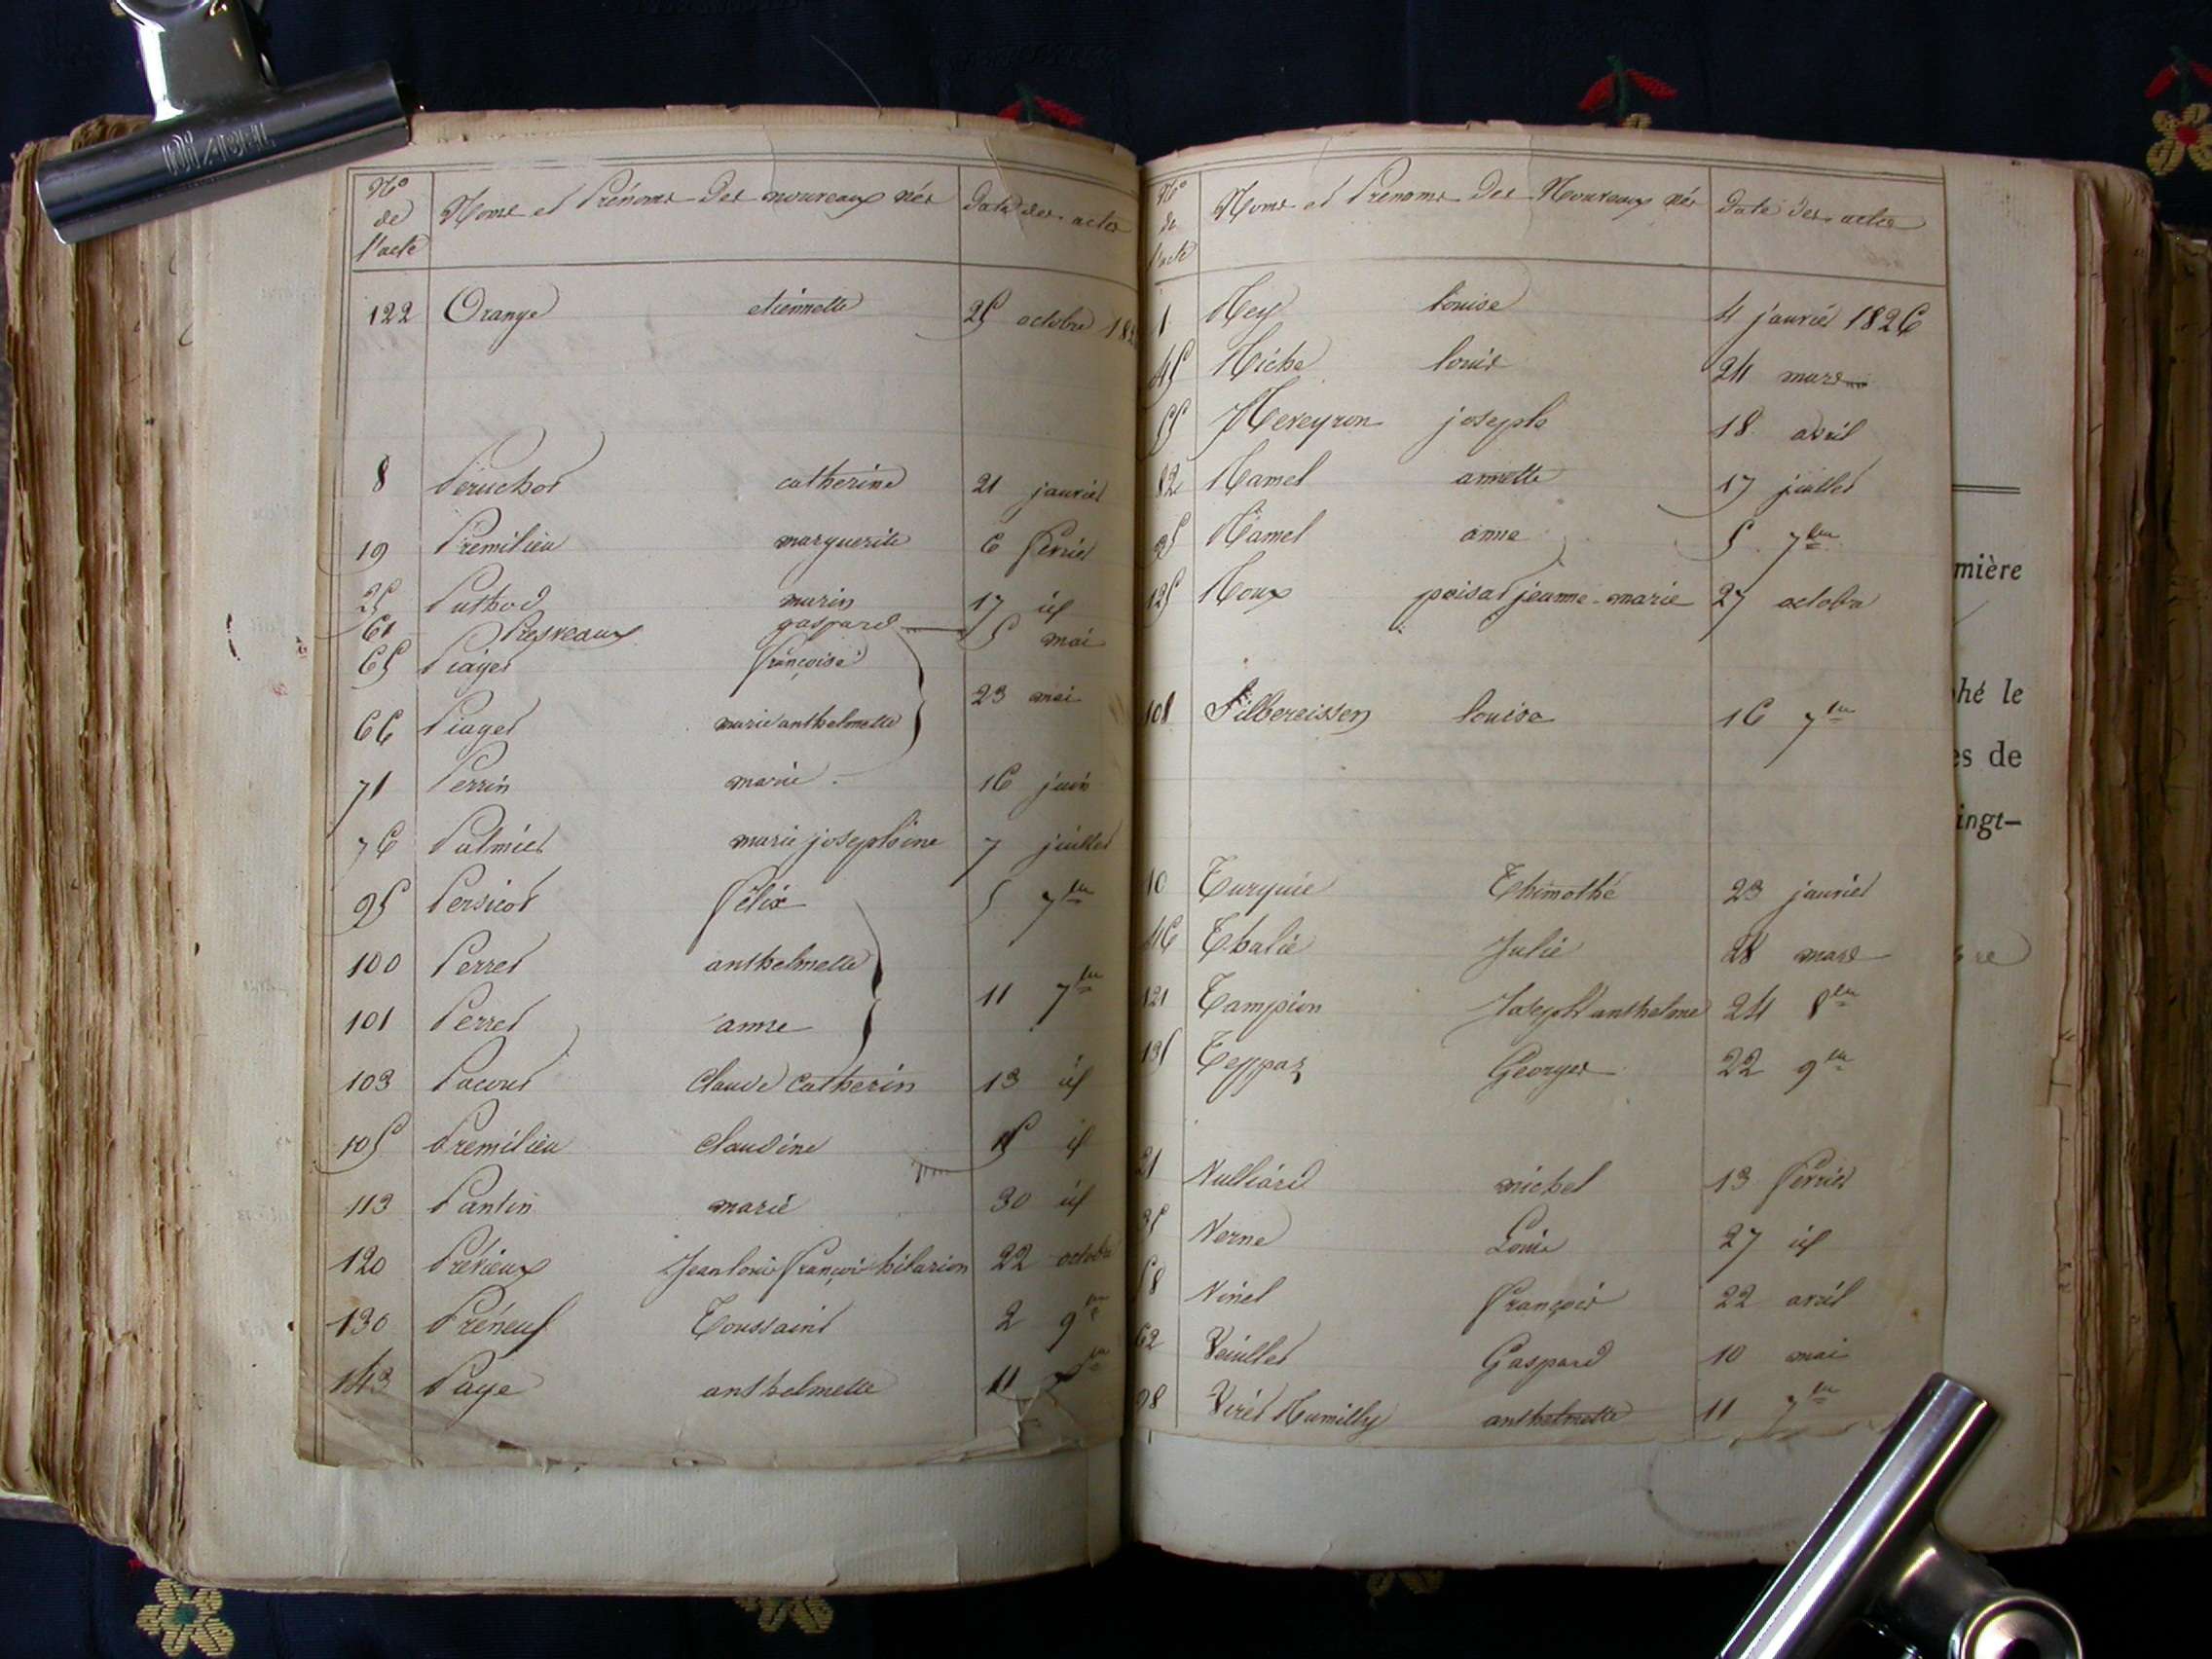 DIABEL
N° de l'acte Noms et Prénoms des nouveaux nés Date des actes
122 Orange etiennette 25 octobre
8 Peruchot catherine 21 janvier
19 Premilieu marguerite 6 fevrier
25 Puthod marin 17 id
61 Presveaux gaspard 5 mai
65 Piaget françoise
66 Piaget marie anthelmette 23 mai
71 Perrin marie 16 juin
76 Palmier marie josephine 7 juillet
95 Persicot félix 5 7bre
100 Perret anthelmette
101 Perret anne 11 7bre
103 Pacout Claude Catherin 13 id
105 Premilieu Claudine 15 id
113 Pantin marie 30 id
120 Prévieux Jean louis françois hilarion 22 octobre
130 Préneuf Toussaint 2 9bre
143 Page anthelmette 11
N° de l'acte Noms et Prénoms des Nouveaux nés Date des actes
1 Rey louise 4 janvier 1826
45 Riche louis 24 mars
55 Reveyron joseph 18 avril
82 Ramel annette 17 juillet
95 Ramel anne 5 7bre
125 Roux poisat jeanne-marie 27 octobre
108 Silbereissen louise 16 7bre
10 Turquie Thimothé 23 janvier
46 Thalie Julie 28 mars
121 Tampion Joseph anthelme 24 8bre
135 Teppaz Georges 22 9bre
21 Vulliard michel 13 fevrier
35 Verne Louis 27 id
58 Vinet françois 22 avril
62 Veuillet Gaspard 10 mai
98 Viret Rumilly anthelmette 11 7bre
mière
phé le
es de
ingt-